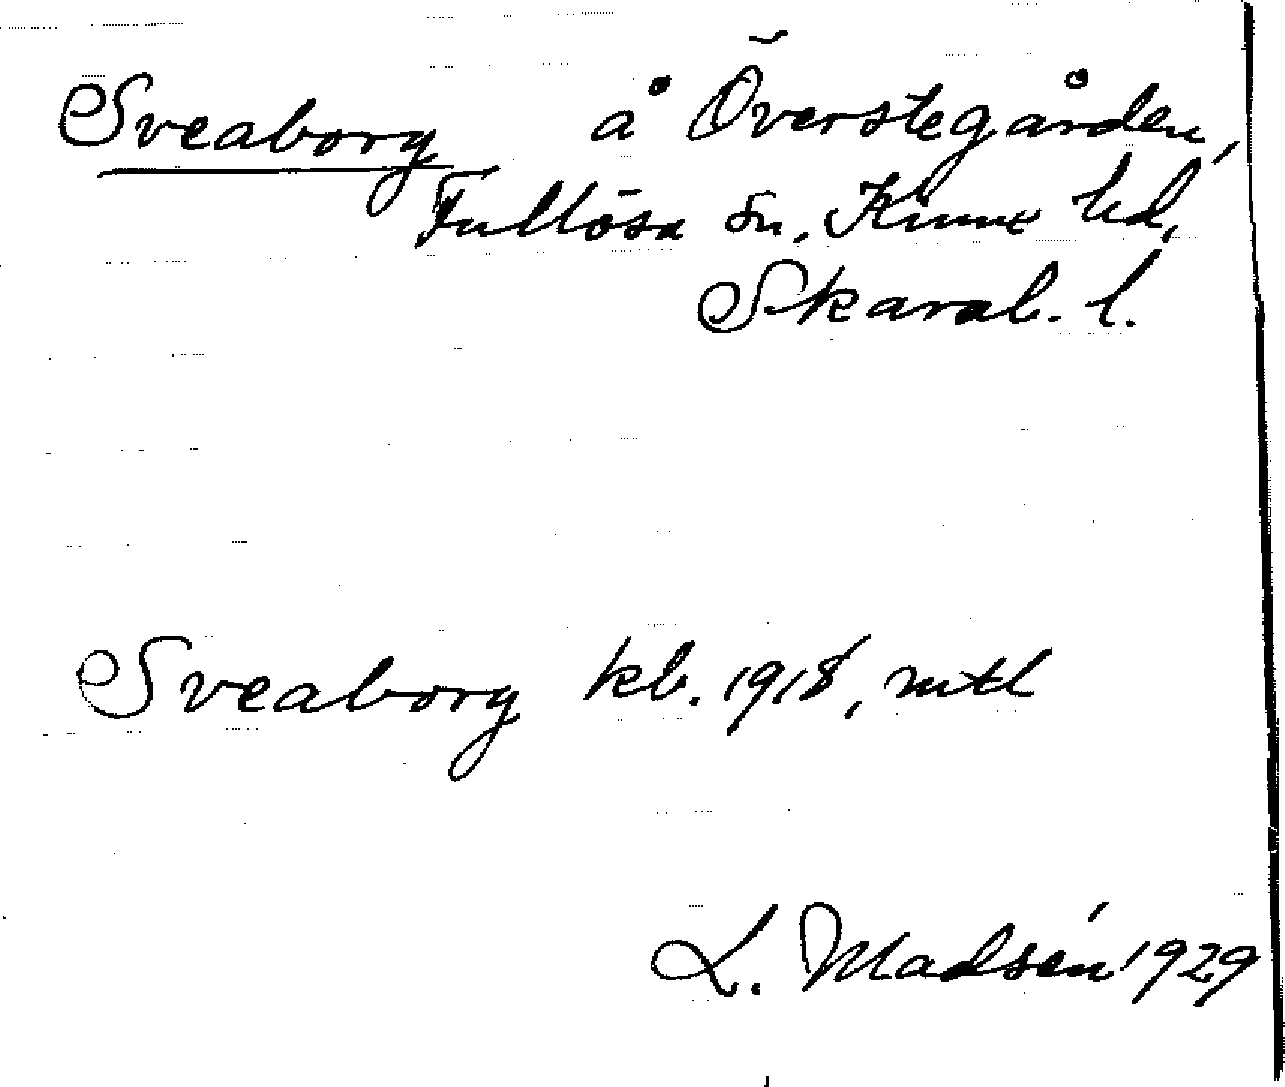 Sveaborg å Överstegården,
Fullösa sn, Kinne hd,
Skarab. l.
Sveaborg kb. 1918, mtl
L. Madsén 1929